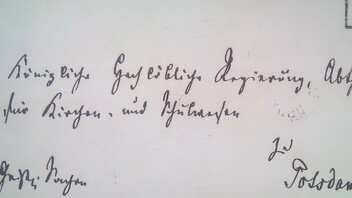 Königliche Hochlöbliche Regierung, Abth
für Kirchen- und Schulwesen
zu
Potsdam